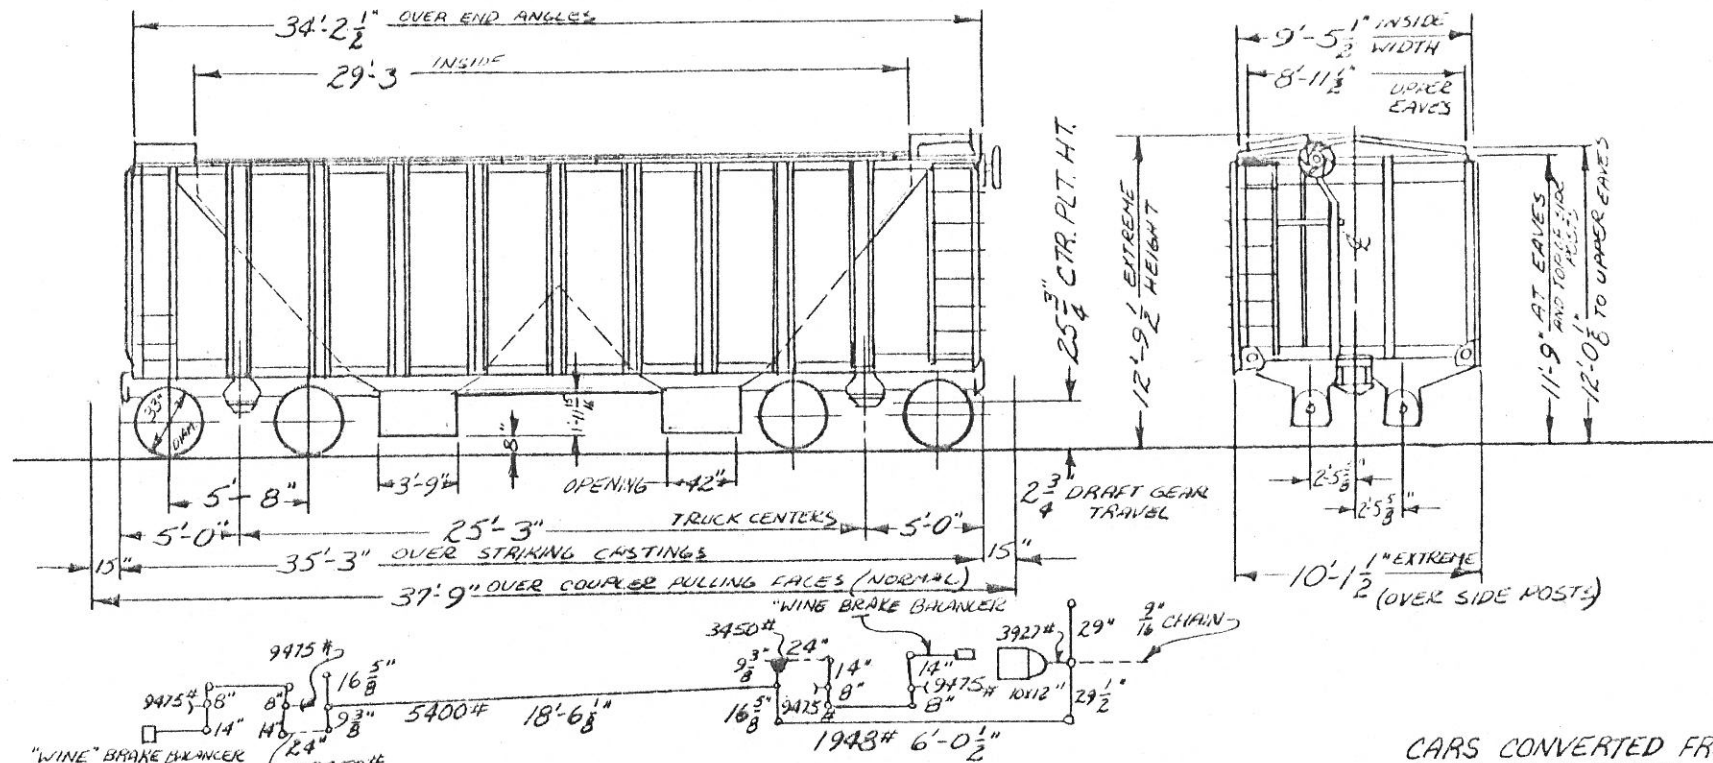 34'-2 1/2" OVER END ANGLES
29'-3 INSIDE
9'-5 1/2" INSIDE WIDTH
8'-11 1/2" UPPER EAVES
25 3/4" CTR. PLT. HT.
12'-9 1/2 EXTREME HEIGHT
11'-9" AT EAVES
AND TOP OF SIDE POSTS
12'-0 1/8" TO UPPER EAVES
33" DIAM.
8"
3'-9"
OPENING 42"
5'-8"
2 3/4" DRAFT GEAR TRAVEL
2'-5 5/8"
2'-5 5/8"
5'-0"
25'-3" TRUCK CENTERS
5'-0"
15"
35'-3" OVER STRIKING CASTINGS
15"
37'-9" OVER COUPLER PULLING FACES (NORMAL)
10'-1 1/2" EXTREME
(OVER SIDE POSTS)
"WINE BRAKE BALANCER
3450#
24"
3927#
29"
9/16" CHAIN
9475#
16 5/8"
9 3/8"
14"
14"
9475#
8"
8"
5400#
18'-6 1/8"
16 5/8"
9475#
8"
9475#
8"
10x12"
29 1/2"
14"
14"
9 3/8"
24"
1948# 6'-0 1/2"
"WINE" BRAKE BALANCER
CARS CONVERTED FR